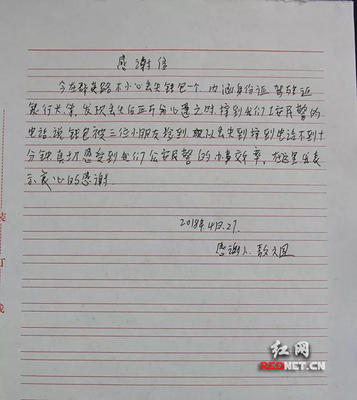 感谢信
今在群英路不小心丢失钱包一个 内涵身份证 驾驶证
银行卡等。发现丢失后正万分心急之时 接到我们公安民警的
电话 说钱包被三位小朋友捡到 从丢失到接到电话不到十
分钟 真切感受到我们公安民警的办事效率。在这里发表
示衷心的感谢.
2018年4月.27.
感谢人
红网
REDNET.CN
装
订
线